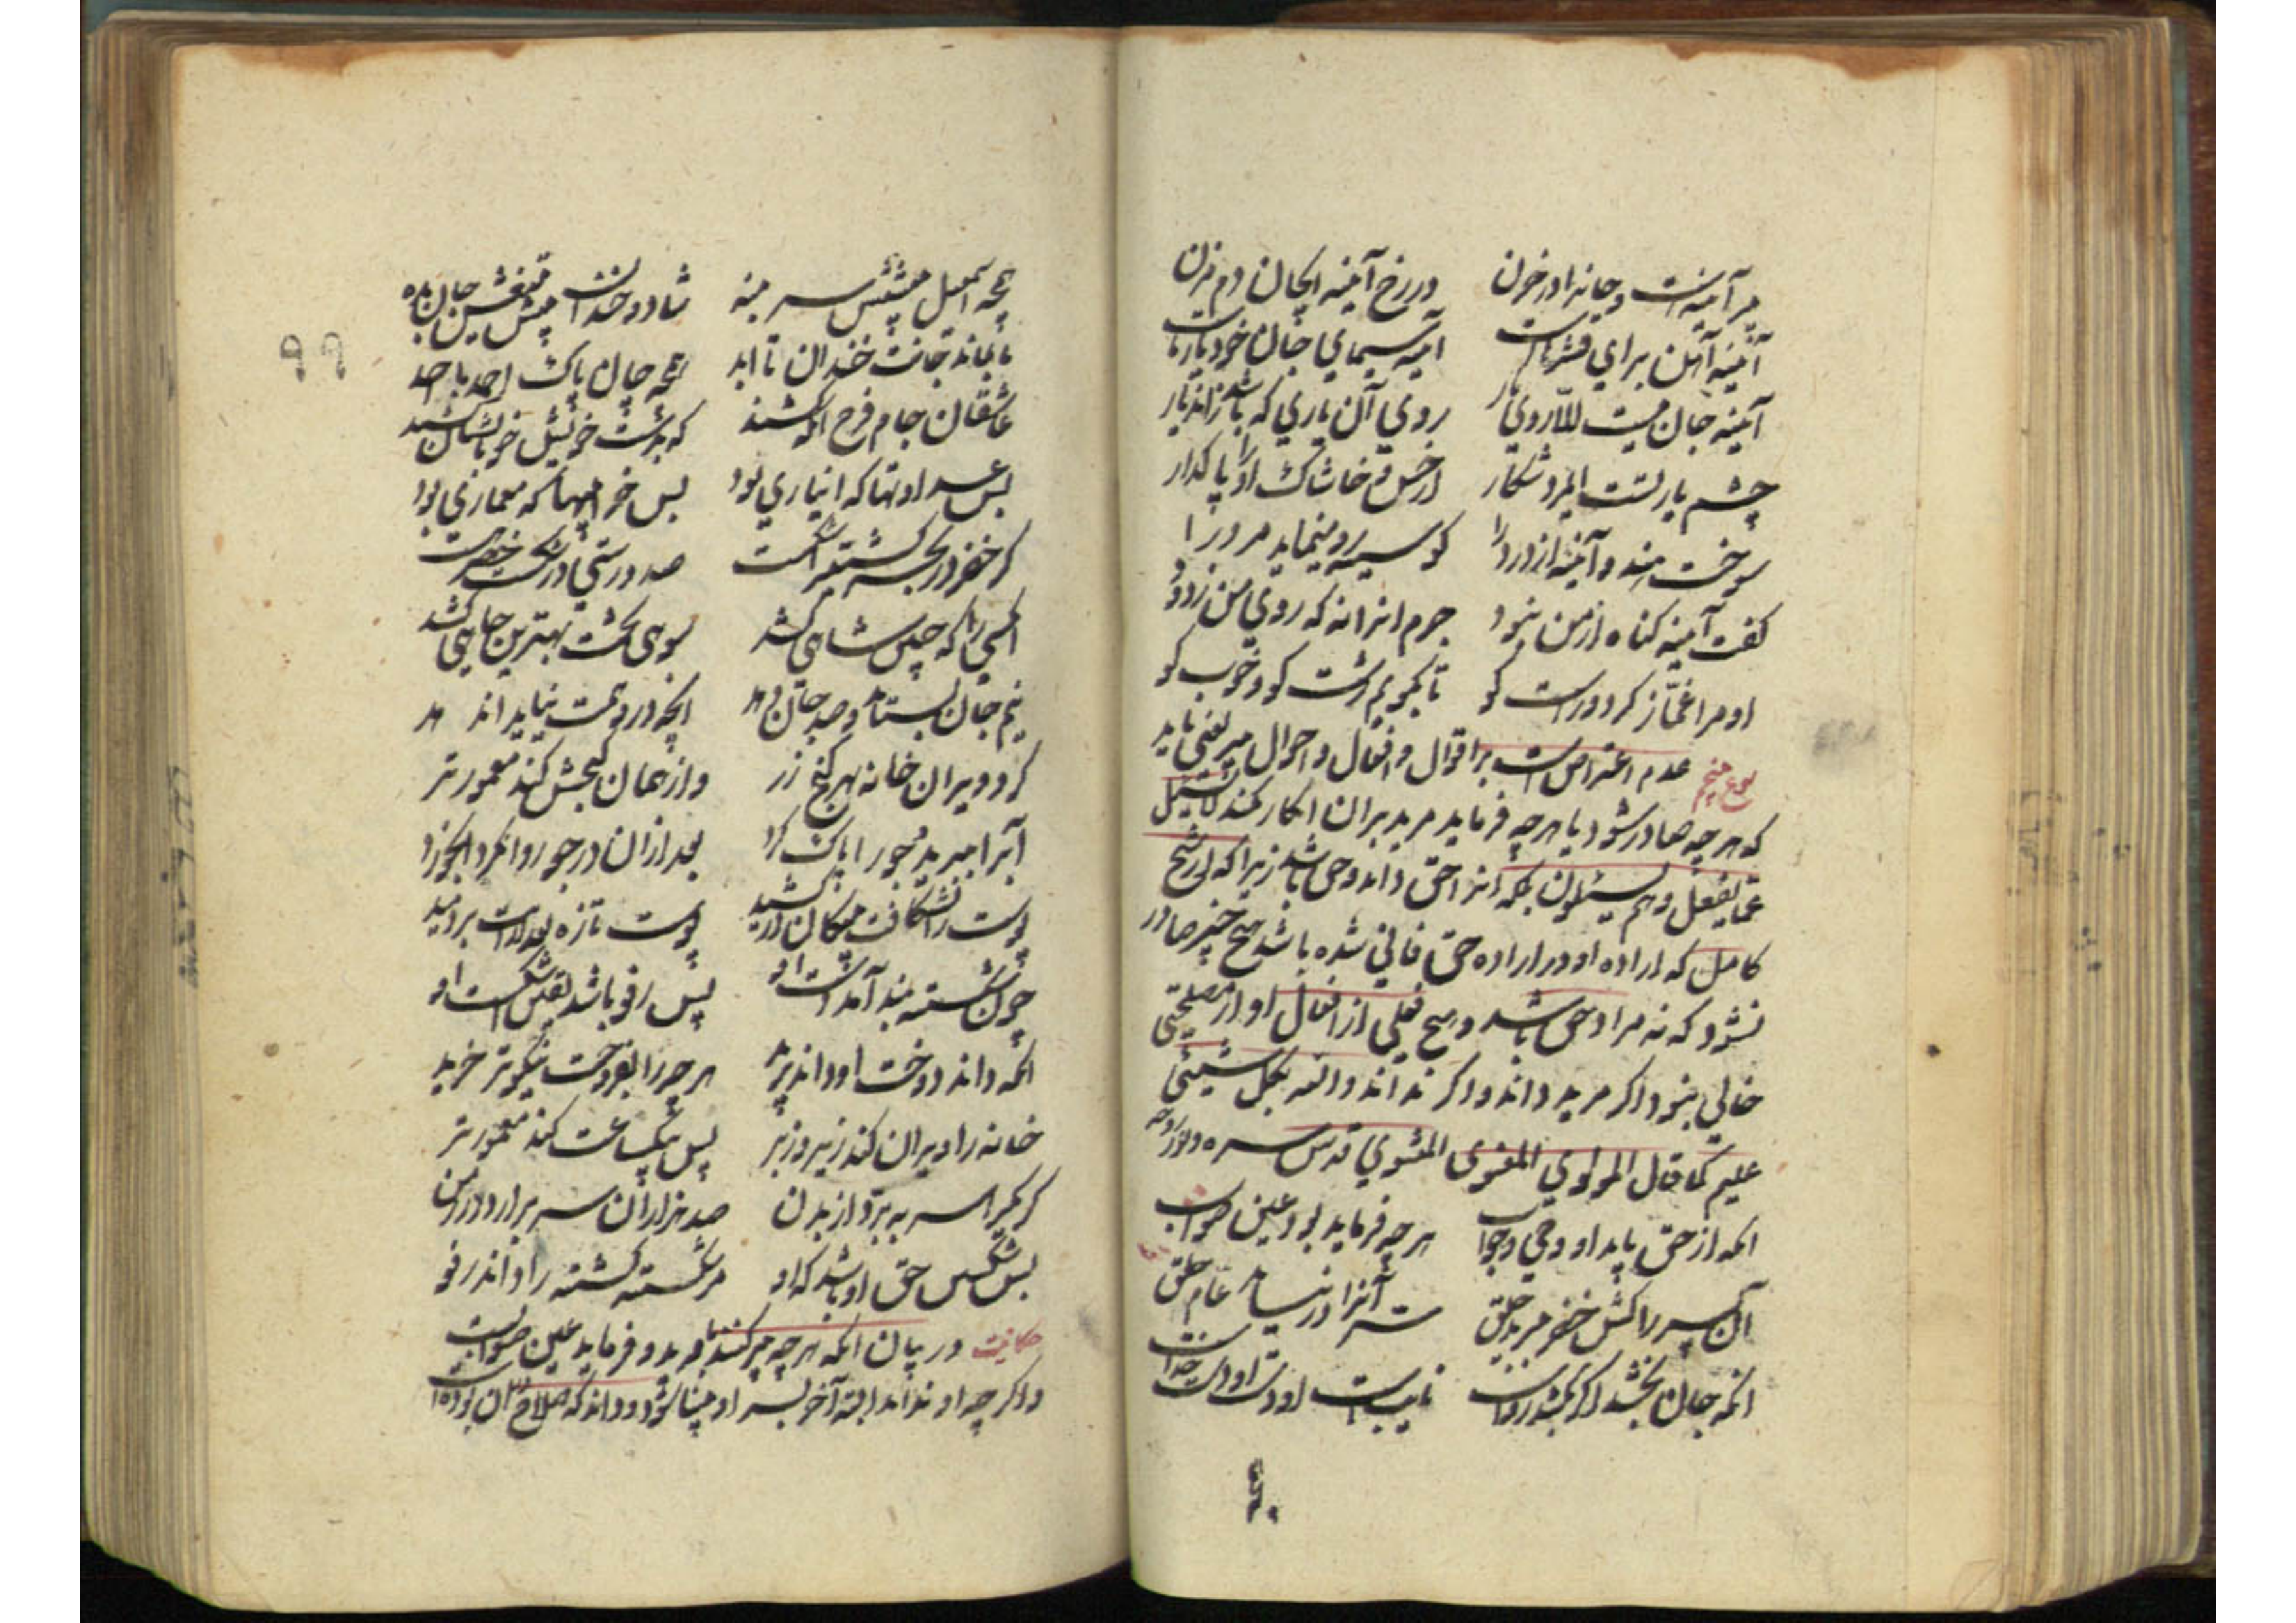 پیر آینه است و جانرا در حزن در رخ آینه ایجان دم مزن
آینه آهن برای قشرهاست آینه سیمای جان خود یارماست
آینه جان نیست الا روی یار روی آن یاری که باشد زاندیار
چشم یار تست ایمرد شکار از خس و خاشاک او را پاکدار
سوخت هندو آینه از درد را کو سیه رو مینماید مرد را
گفت آینه گناه از من نبود جرم انرا نه که روی من زدود
او مرا غماز کرد و راست گو تا بگویم زشت کو و خوب کو
نوع پنجم عدم اعتراض است بر اقوال و افعال و احوال پیر یعنی باید
که هر چه صادر شود یا هر چه فرماید مرید بران انکار نکند لا یسئل
عما یفعل و هم یسئلون بلکه انرا حق داند و حق باشد زیرا که از شیخ
کامل که اراده او در اراده حق فانی شده باشد هیچ چیز صادر
نشود که نه مراد حق باشد و هیچ فعلی از افعال او از مصلحتی
خالی نبود اگر مرید داند و اگر نداند والله بکل شیئی
علیم کما قال المولوی المعنوی المثنوی قدس سره و نور روحه
انکه از حق یابد او وحی و جواب هر چه فرماید بود عین صواب
آن پسر را کش خضر ببرید حلق سر آنرا در نیابد عام خلق
انکه جان بخشد اگر بکشد رواست نایبست او دست او دست خداست
همچو اسمعیل پیشش سر بنه شاد و خندان پیش تیغش جان بده
تا بماند جانت خندان تا ابد همچو جان پاک احمد با احد
عاشقان جام فرح انگه کشند که بدست خویش خوبانشان کشند
بس عداوتها که ان یاری بود بس خرابیها که معماری بود
گر خضر در بحر کشتی را شکست صد درستی در شکست خضر هست
انکسی را که چنین شاهی کشد سوی بخت و بهترین جاهی کشد
نیم جان بستاند و صد جان دهد انچه در وهمت نیاید اندهد
کرد ویران خانه بهر گنج زر وز همان گنجش کند معمورتر
آب را ببرید و جو را پاک کرد بعد ازان در جو روان کرد ابخورد
پوست را بشکافت پیکان در کشید پوست تازه بعد ازانش بردمید
چون شکسته بند آمد دست او پس رفو باشد یقین اشکست او
انکه داند دوخت او داند درید هر چه را بفروخت نیکوتر خرید
خانه را ویران کند زیر و زبر پس بیکساعت کند معمورتر
گر یکی را سر ببرد از بدن صد هزاران سر برارد در زمن
بس شکستن حق او باشد که او مر شکسته گشته را داند رفو
حکایت در بیان انکه هر چه پیر کند با مرید و فرماید عین صوابست
و اگر چه او نداند البته آخر بسر او بینا شود و داند که صلاح او ان بوده است
۹۹